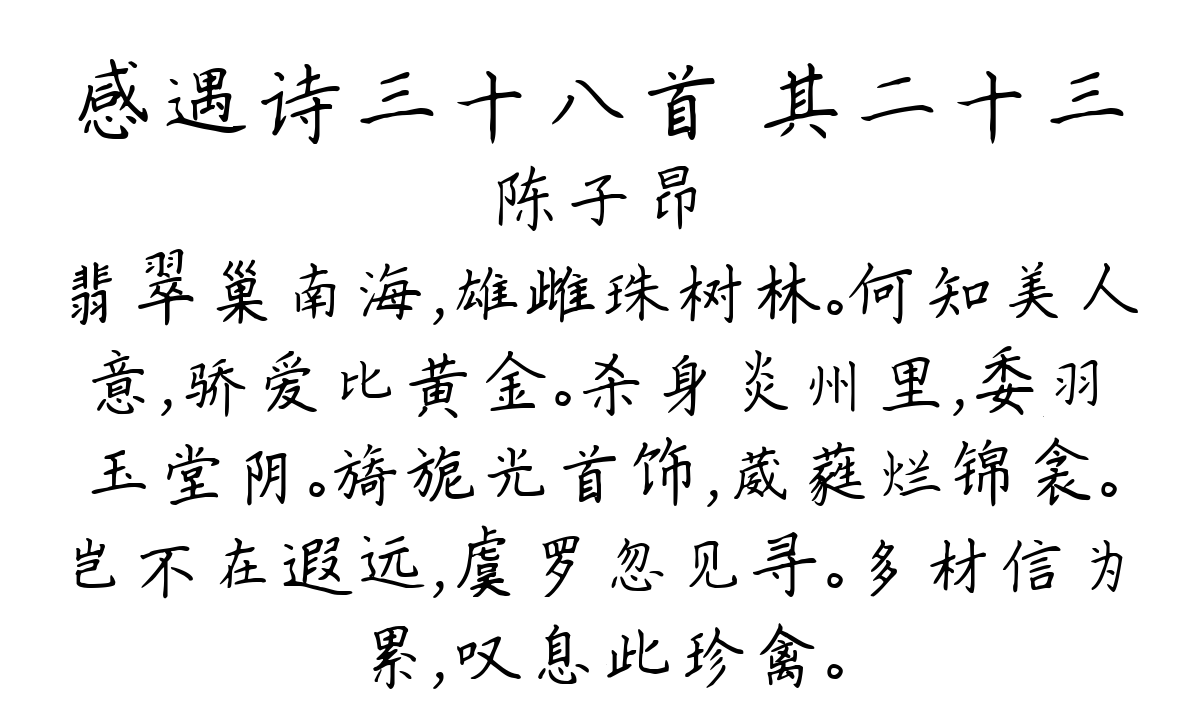 感遇诗三十八首 其二十三
陈子昂
翡翠巢南海,雄雌珠树林。何知美人
意,骄爱比黄金。杀身炎州里,委羽
玉堂阴。旖旎光首饰,葳蕤烂锦衾。
岂不在遐远,虞罗忽见寻。多材信为
累,叹息此珍禽。